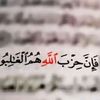 فَإِنَّ حِزْبَ اللَّهِ هُمُ الْغَالِبُو